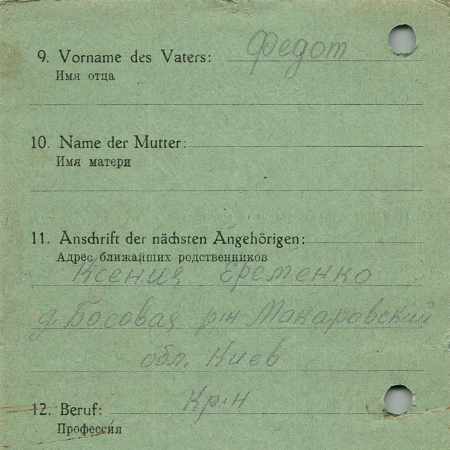 9. Vorname des Vaters: Федот
Имя отца
10. Name der Mutter:
Имя матери
11. Anschrift der nächsten Angehörigen:
Адрес ближайших родственников
Ксения Еременко
д. Босовая р-н Макаровский
обл. Киев
12. Beruf: Кр-н
Профессия